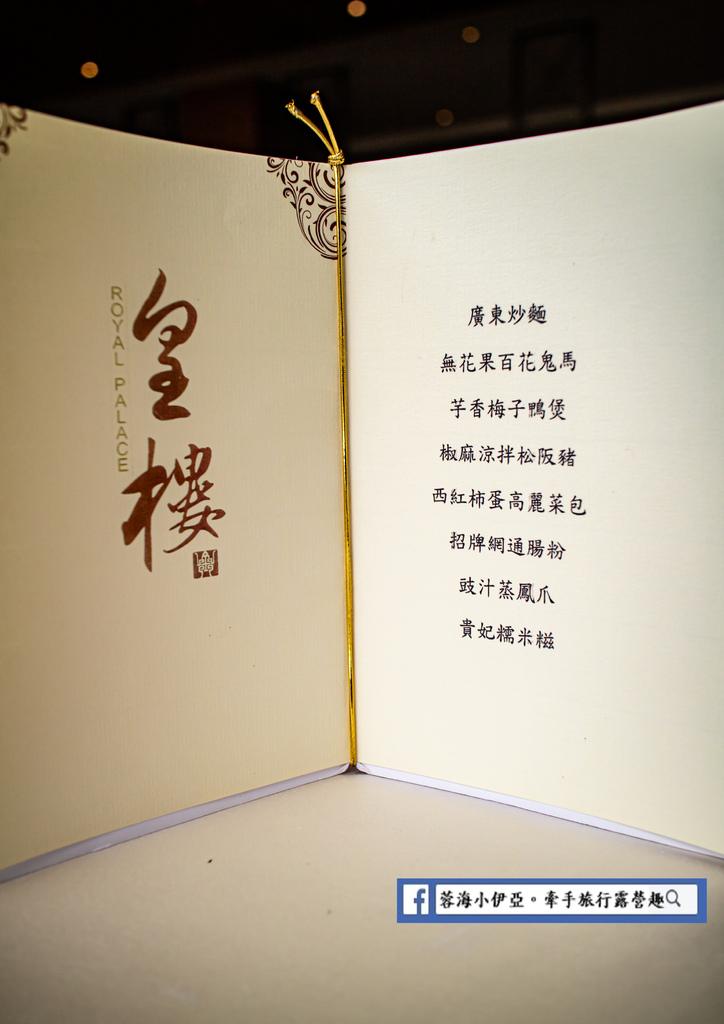 皇樓
ROYAL PALACE
廣東炒麵
無花果百花鬼馬
芋香梅子鴨煲
椒麻涼拌松阪豬
西紅柿蛋高麗菜包
招牌網通腸粉
豉汁蒸鳳爪
貴妃糯米糍
蓉海小伊亞。牽手旅行露營趣